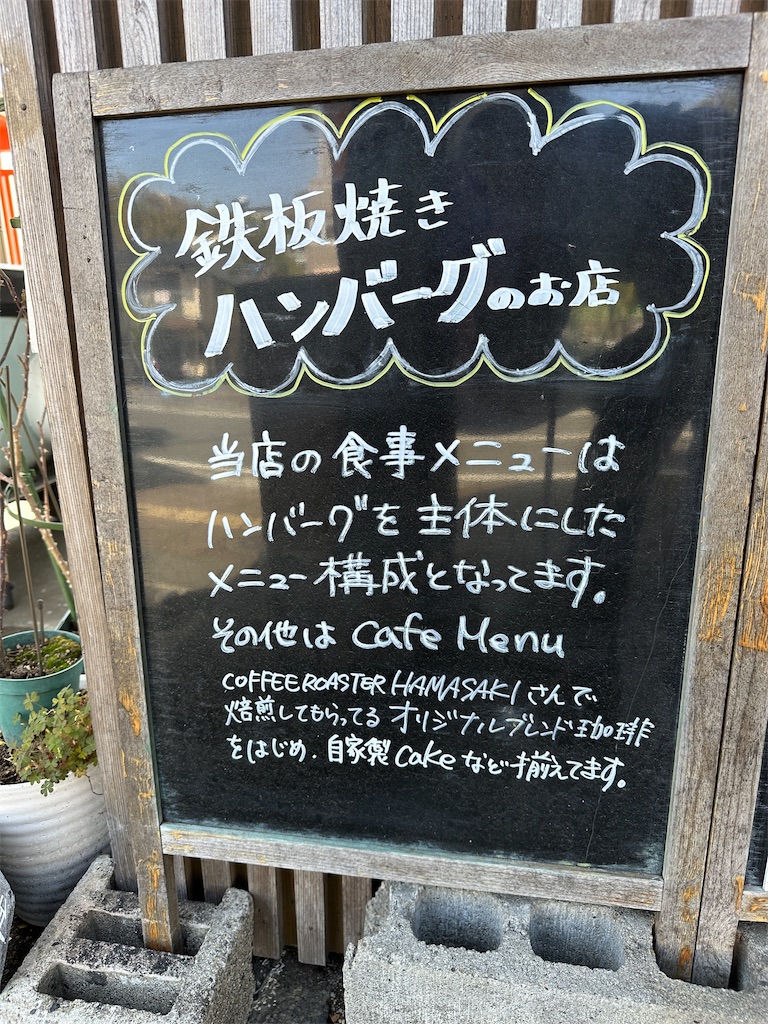 鉄板焼き
ハンバーグのお店
当店の食事メニューは
ハンバーグを主体にした
メニュー構成となってます。
その他は Cafe Menu
COFFEE ROASTER HAMASAKI さんで
焙煎してもらってる オリジナルブレンド珈琲
をはじめ、自家製 Cake など揃えてます。